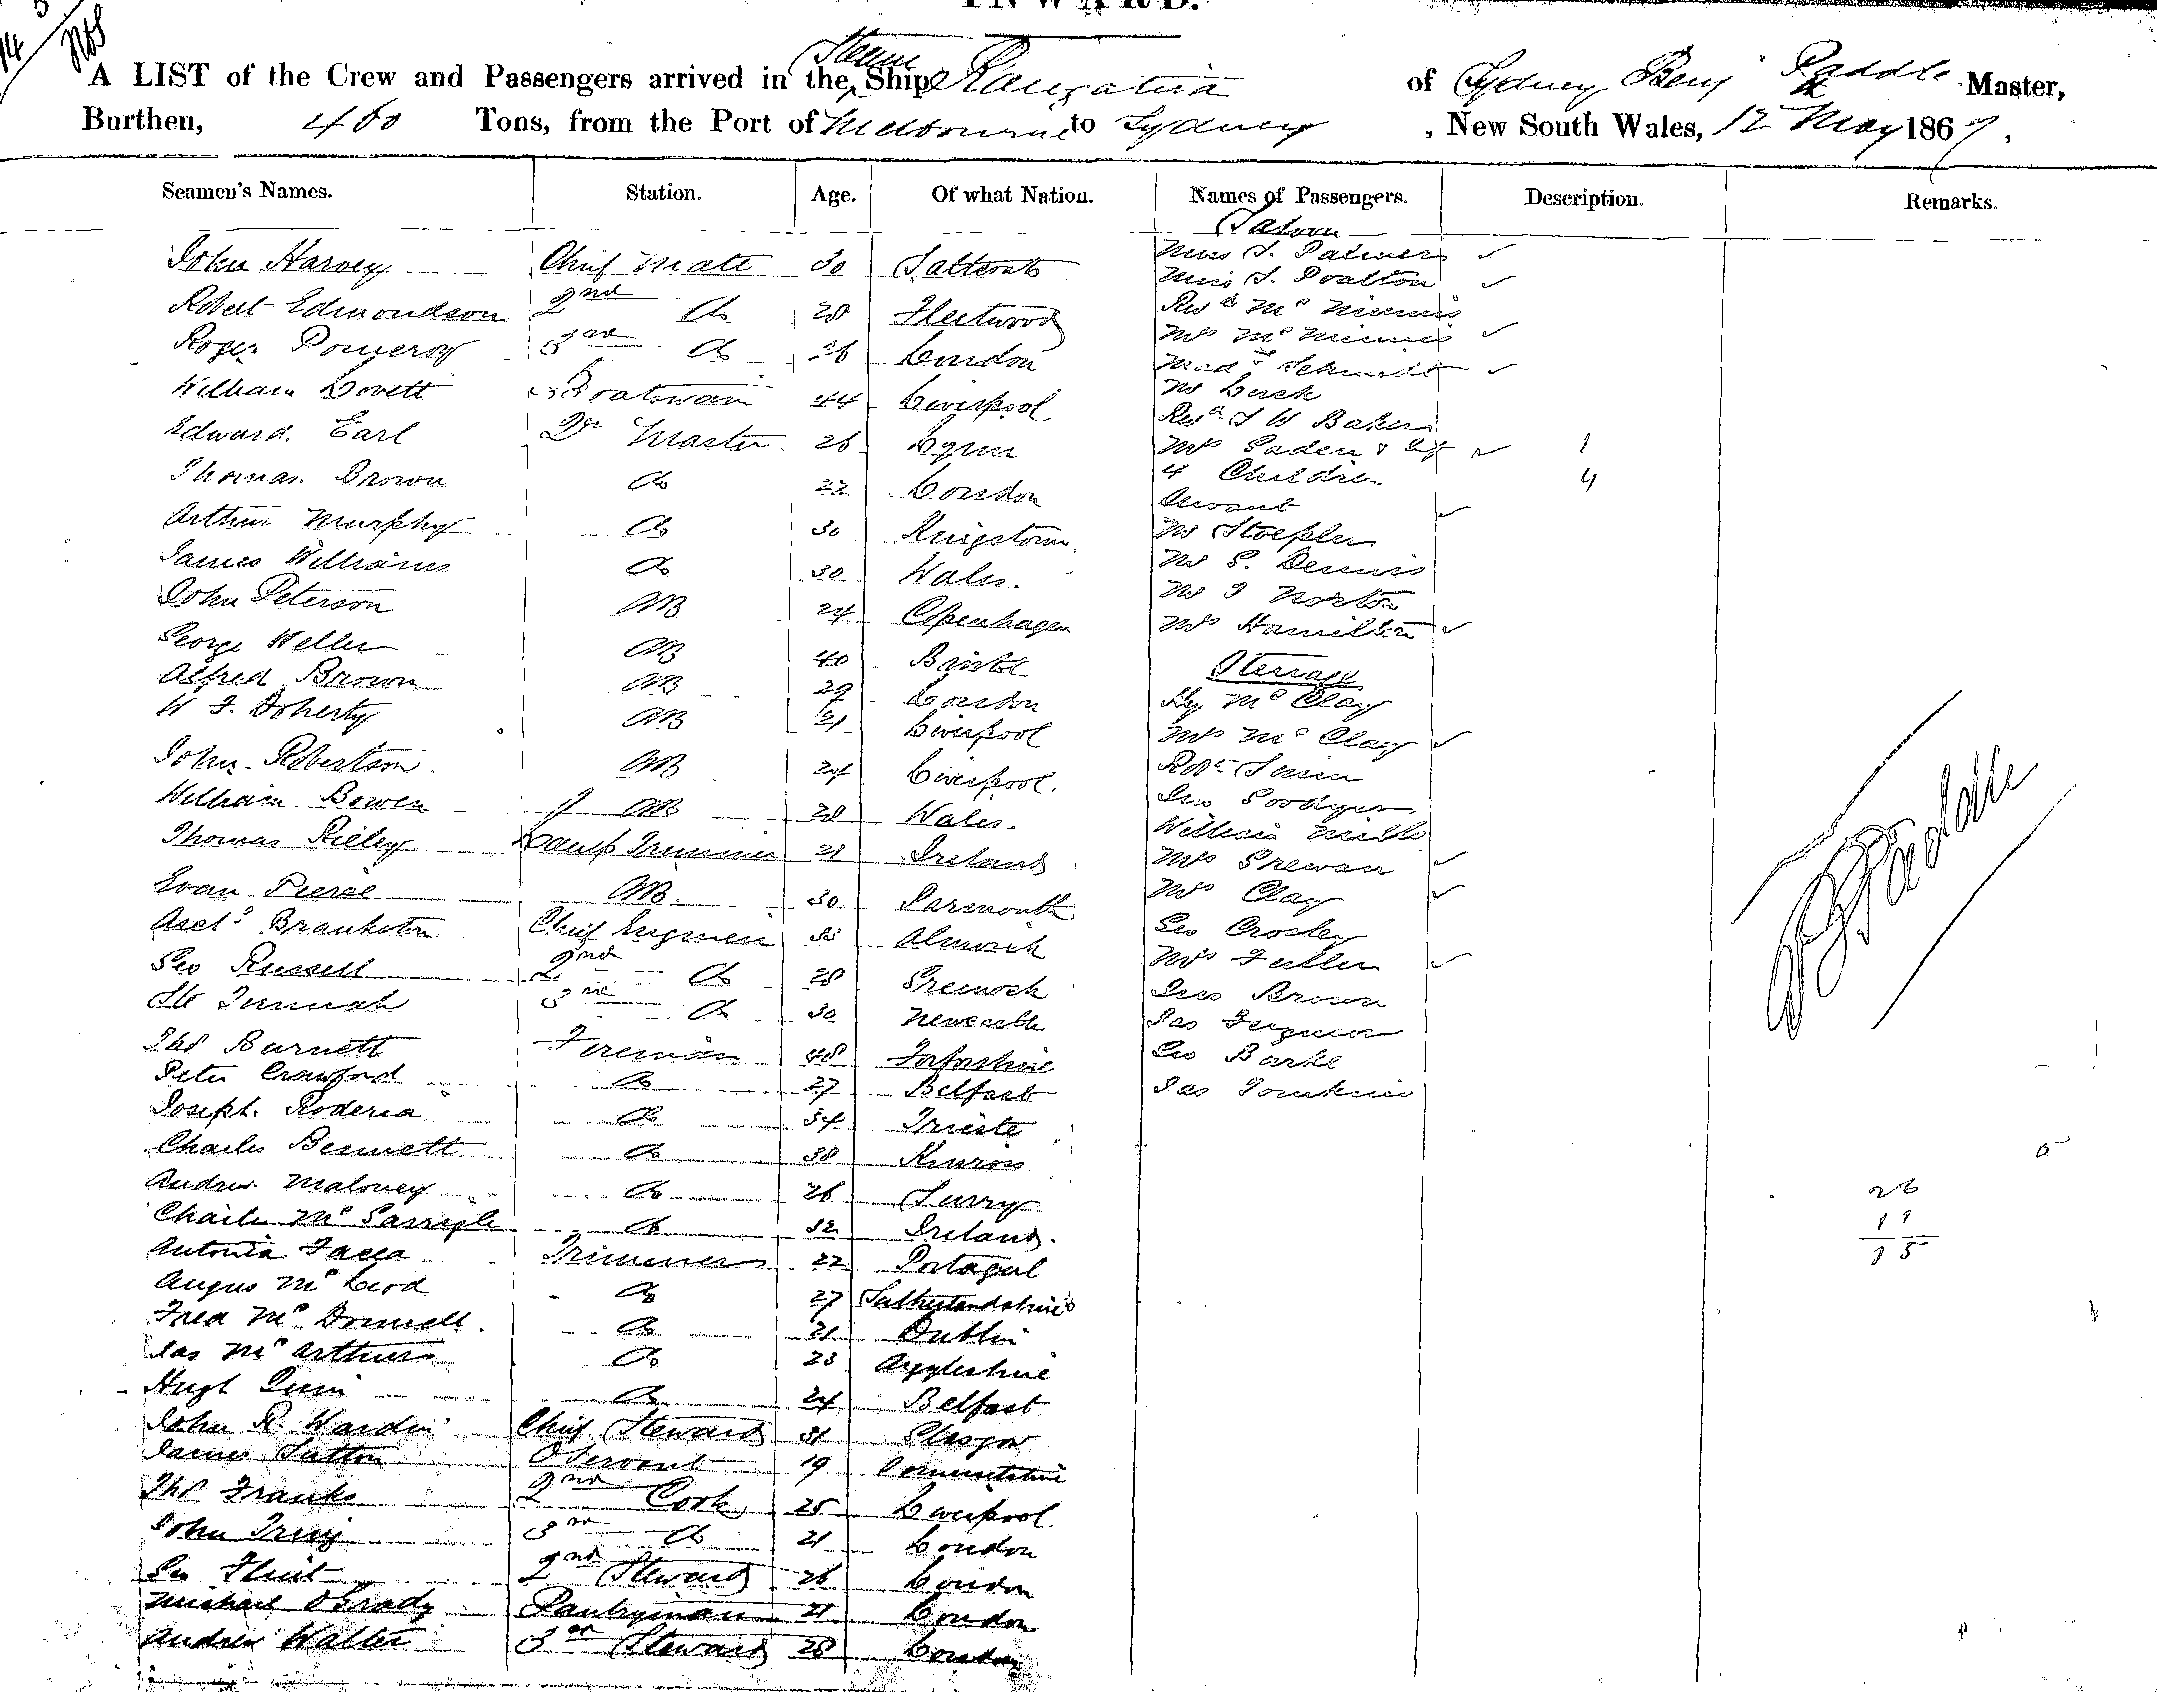 INWARD.
A LIST of the Crew and Passengers arrived in the Steam Ship Rangatira of Sydney Benj Paddle Master,
Burthen, 460 Tons, from the Port of Melbourne to Sydney, New South Wales, 12 May 1867.
Seamen's Names. Station. Age. Of what Nation. Names of Passengers. Description. Remarks.
Saloon
John Harvey Chief Mate 30 Saltcoats Miss J. Palmer
Miss J. Poalton
Robert Edmondson 2nd Do 28 Fleetwood Revd Mc
Roger Pomeroy 3rd Do 26 London Mrs Mc
William Lovett Boatswain 44 Liverpool Madm
Mr
Edward Earl Qr Master 26 Lynn Revd J W Baker
Mrs & 1
Thomas Brown Do 22 London 4 Children 4
Servant
Arthur Murphy Do 30 Kingstown Mr Stoepler
James Williams Do 30 Wales. Mr S. Dennis
John Peterson AB 24 Copenhagen Mr J Norton
George Weller AB 40 Bristol Mrs Hamilton
Alfred Brown AB 29 London Steerage
W J. Doherty AB 21 Liverpool Hy Mc Clay
Mrs Mc Clay
John Robertson AB 24 Liverpool. Robt
William Bowen AB 28 Wales. Jno
Thomas Rieley Lamp Trimmer 21 Ireland William Mills
Mrs Grewan
Evan Pierce AB 30 Mrs Clay
Arch Branketon Chief Engineer 38 Alnwick Geo Crosley
Geo Russell 2nd Do 28 Greenock Mrs Fuller
3rd Do 30 Newcastle Jno Brown
Jas Ferguson
Thos Burnett Fireman 48 Forfarshire Geo Barke
Peter Crawford Do 27 Belfast Jas Tomkins
Joseph Roderia Do 34 Trieste
Charles Bennett Do 38
Andrew Maloney Do 26 Surry 26
Charles Mc Garrigle Do 32 Ireland.
Antonia Facca Trimmer 22 Portugal
Angus Mc Leod Do 27 Sutherlandshire
Fred Mc Donnell Do 21 Dublin
Jas Mc Arthur Do 23 Argyleshire
Hugh Do 24 Belfast
John R. Hardin Chief Steward 31 Glasgow
James Sutton Servant 19
Thos Franks 2nd Cook 25 Liverpool
John 3rd Do 21 London
Geo Flint 2nd Steward 26 London
Michael O'Grady Pantryman 21 London
Andrew Walter 3rd Steward 28 London